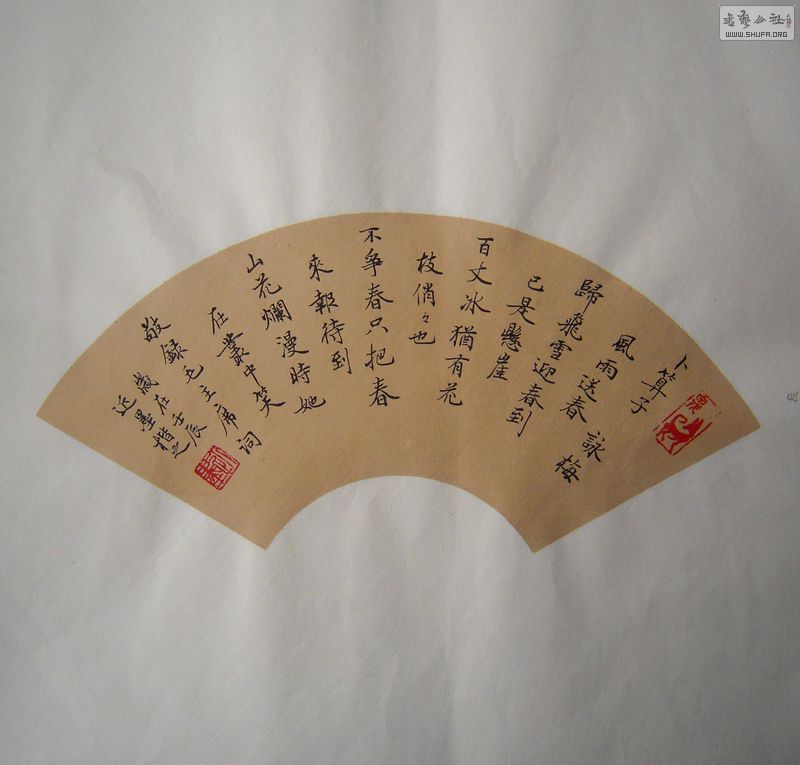 書藝公社
WWW.SHUFA.ORG
卜算子 詠梅
風雨送春
歸飛雪迎春到
已是懸崖
百丈冰猶有花
枝俏々也
不爭春只把春
來報待到
山花爛漫時她
在叢中笑
敬録毛主席詞
歲在壬辰
近墨楷之